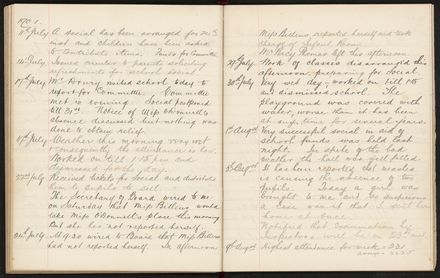 1901.
9th July A social has been arranged for 24th
inst and children have been asked
to contribute items. Funds for Committee
Issued circular to parents soliciting
refreshments for school social.
17th July Mr Dorny visited school today to
report for Committee. Committee
met in evening. Social postponed
till 31st. Notice of Miss O'Donnell's
absence discussed but nothing was
done to obtain relief.
Weather this morning very wet
consequently the attendance is low.
Worked on till 1.45 pm and
dismissed for the day.
22nd July Received tickets for Social and distributed
them to pupils to sell.
The Secretary of Board wired to me
on Saturday that Miss Billens would
take Miss O'Donnell's place this morning
But she has not reported herself.
24th July At 9.30 wired to Board that Miss Billens
had not reported herself. In afternoon
Miss Billens reported herself and took
charge of Infant Room.
Mr Petty Thomas left this afternoon.
29th July Work of classes disarranged this
afternoon preparing for Social
30th July Very wet day, worked on till 1.45
and dismissed school. The
playground was covered with
water, worse than it has been
at any time for several years.
1st Augst Very successful social in aid of
school funds was held last
night. In spite of the bad
weather the hall was well filled.
It has been reported that measles
is causing the absence of two
pupils. Today a girl was
brought to me and so suspicious
a case was it that I sent her
home at once.
Notified that Examination by
Inspectors will be on
9th Augst Highest attendance for week = 331